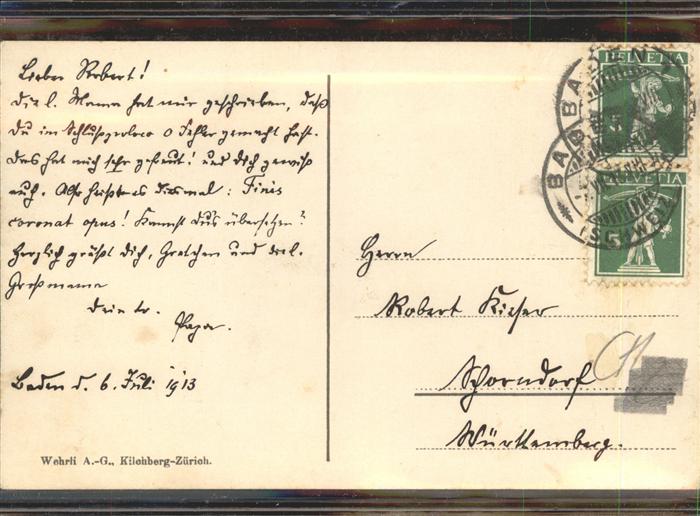 Lieber Robert!
Die l. Mama hat mir geschrieben, daß
du im Schlußproloco 0 Fehler gemacht hast.
Das hat mich sehr gefreut! und dich gewiß
auch. Also heißt es diesmal: Finis
coronat opus! Kannst du's übersetzen?
Herzlich grüßt dich, Gretchen und die l.
Großmama
dein tr.
Papa.
Baden d. 6. Juli 1913
Wehrli A.-G., Kilchberg-Zürich.
HELVETIA
BADEN
BADEN
HELVETIA
(SCHWEIZ)
5
Herrn
Robert Kieser
Schorndorf
Württemberg.